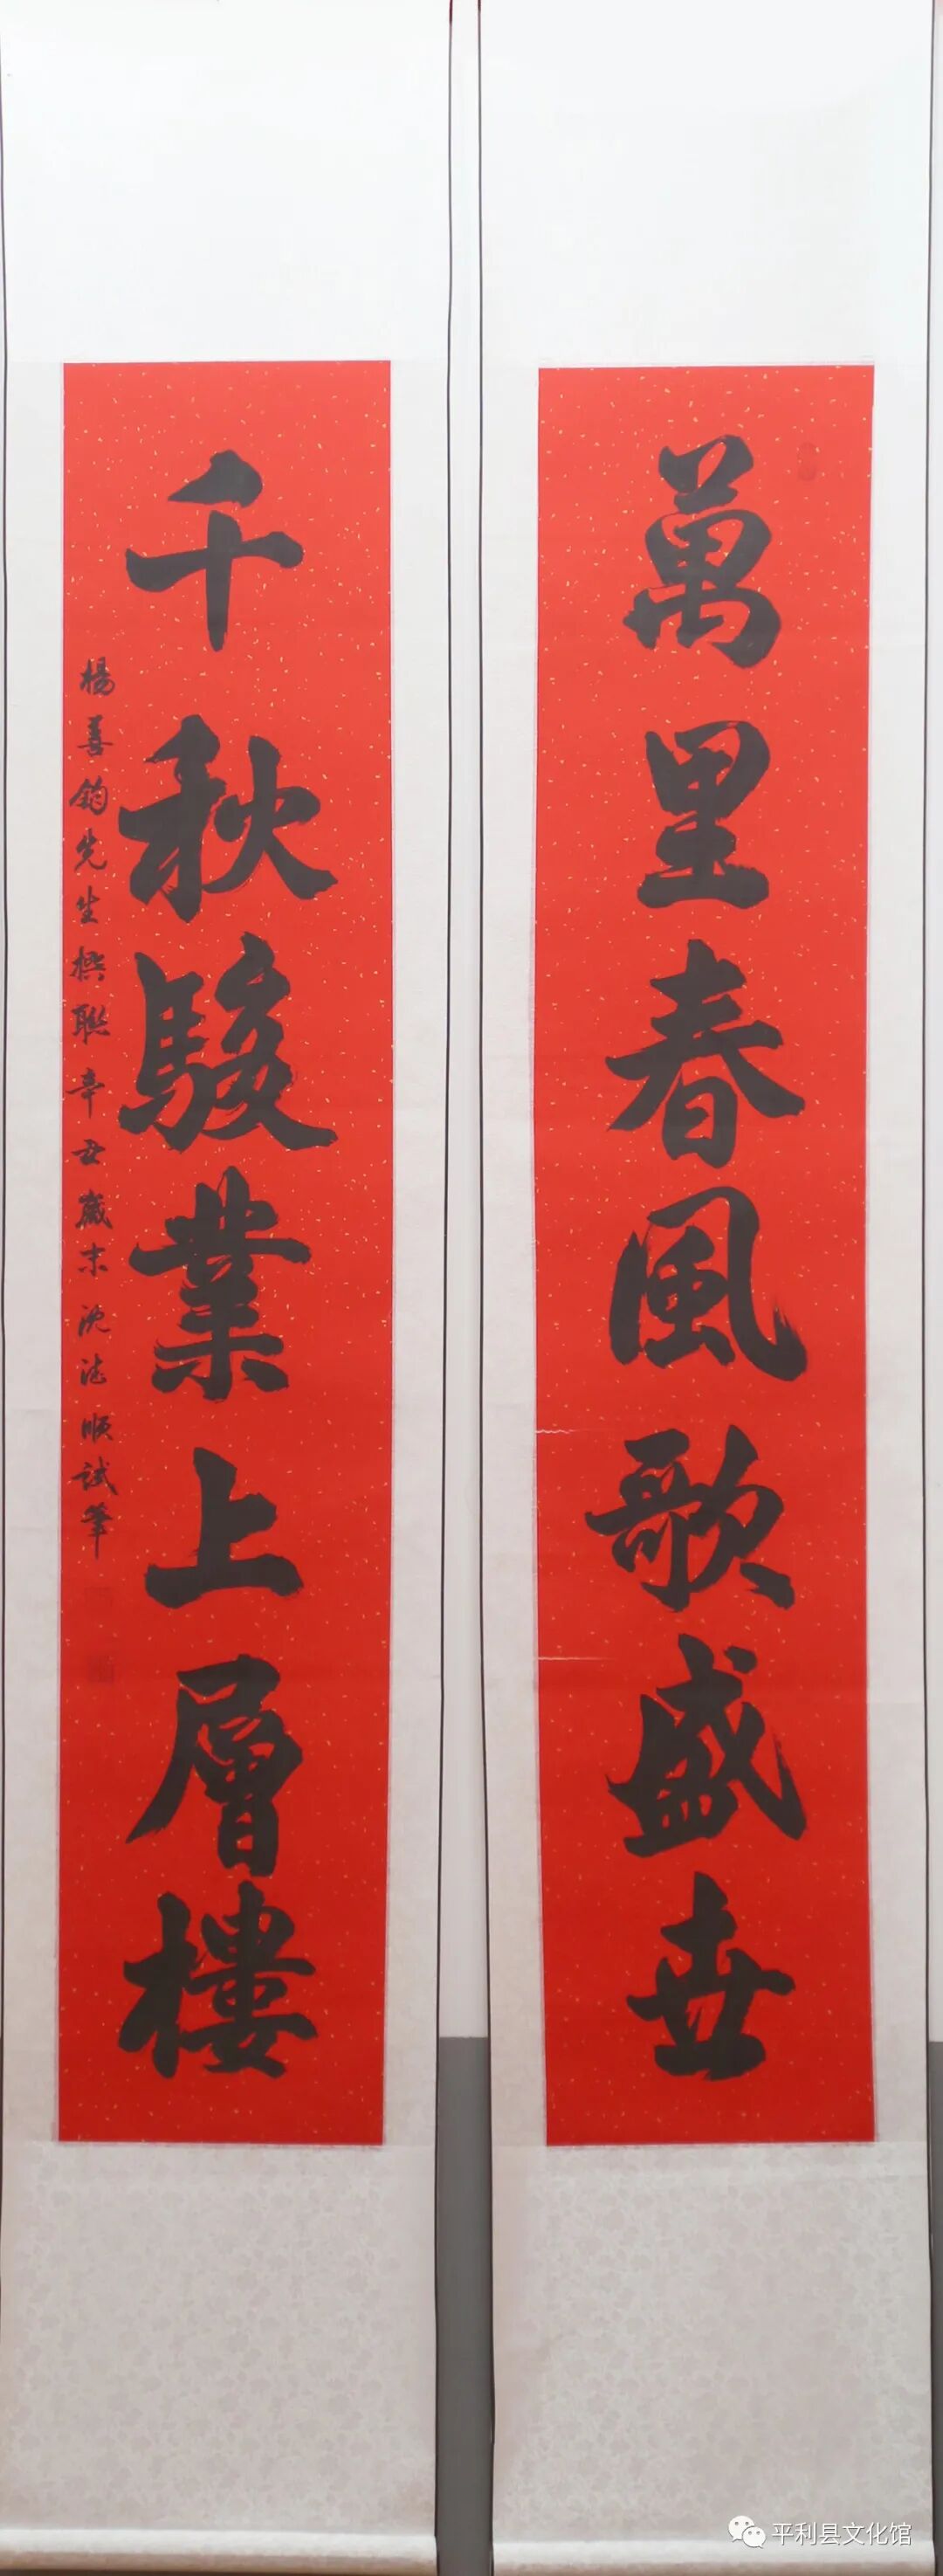 萬里春風歌盛世
千秋駿業上層樓
楊善鈞先生撰聯辛丑歲末沈法順試筆
平利县文化馆